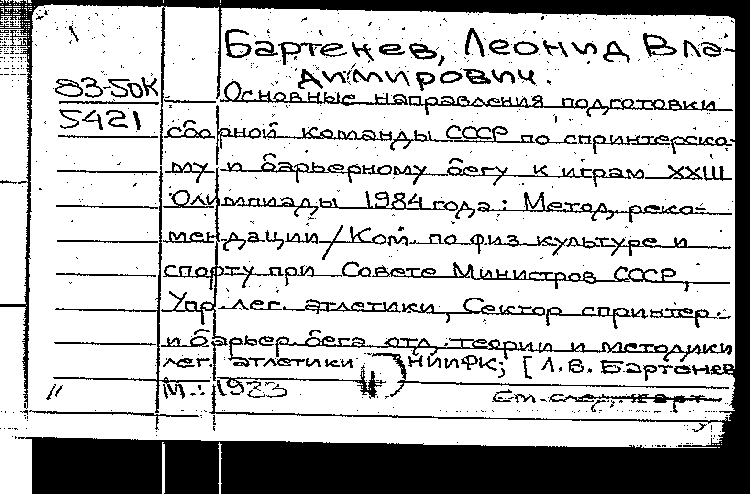 Бартенев, Леонид Вла-
димирович.
83-50К
5421
Основные направления подготовки
сборной команды СССР по спринтерско-
му и барьерному бегу к играм XXIII
Олимпиады 1984 года: Метод. реко-
мендации / Ком. по физ культуре и
спорту при Совете Министров СССР,
Упр. лег. атлетики, Сектор спринтер.
и барьер. бега отд. теории и методики
лег. атлетики ВНИИФК; [Л.В. Бартенев
М.: 1983
См. след. карт